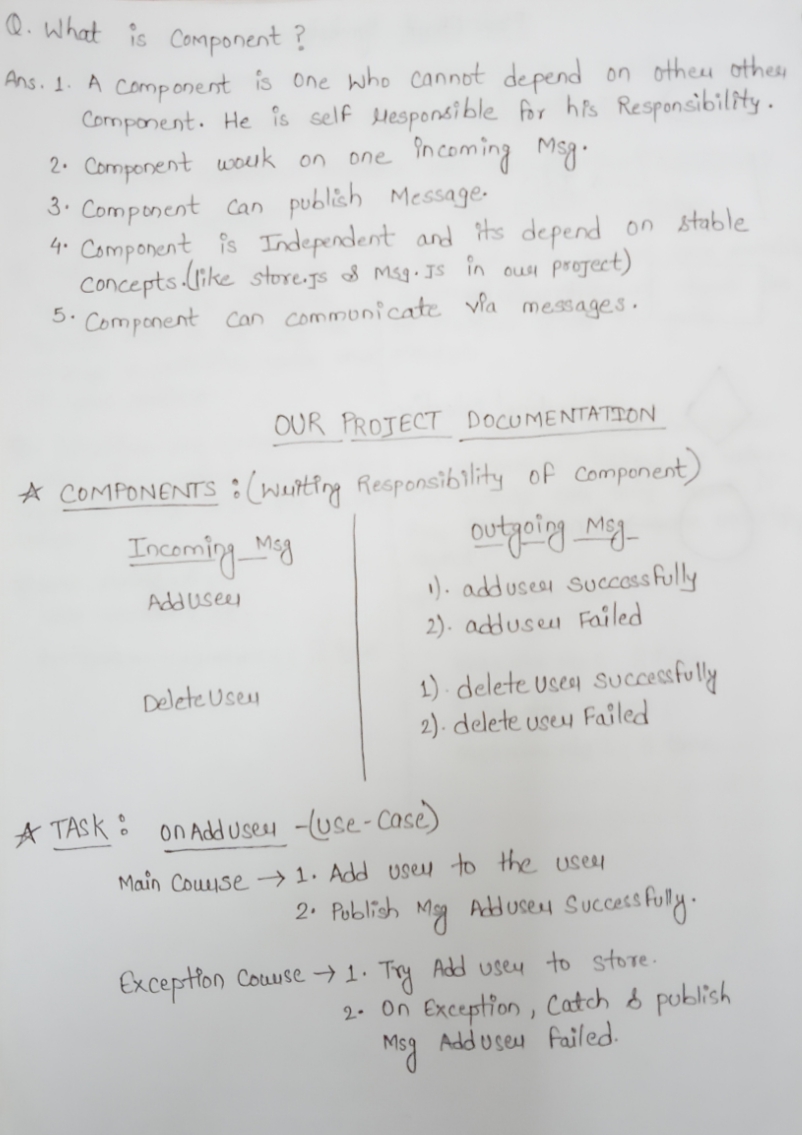 Q. What is Component ?
Ans. 1. A Component is One Who Cannot depend on other other
Component. He is self responsible for his Responsibility.
2. Component work on one incoming Msg.
3. Component can publish Message.
4. Component is Independent and its depend on stable
concepts.(like store.Js & Msg.Js in our project)
5. Component can communicate via messages.
OUR PROJECT DOCUMENTATION
☆ COMPONENTS : (Writing Responsibility of component)
Incoming Msg
Outgoing Msg
Add User
1). add user successfully
2). add user Failed
Delete User
1). delete user successfully
2). delete user Failed
☆ TASK : on Add User -(use-case)
Main Course → 1. Add user to the user
2. Publish Msg Add user Successfully.
Exception Course → 1. Try Add user to store.
2. On Exception, Catch & publish
Msg Add User failed.